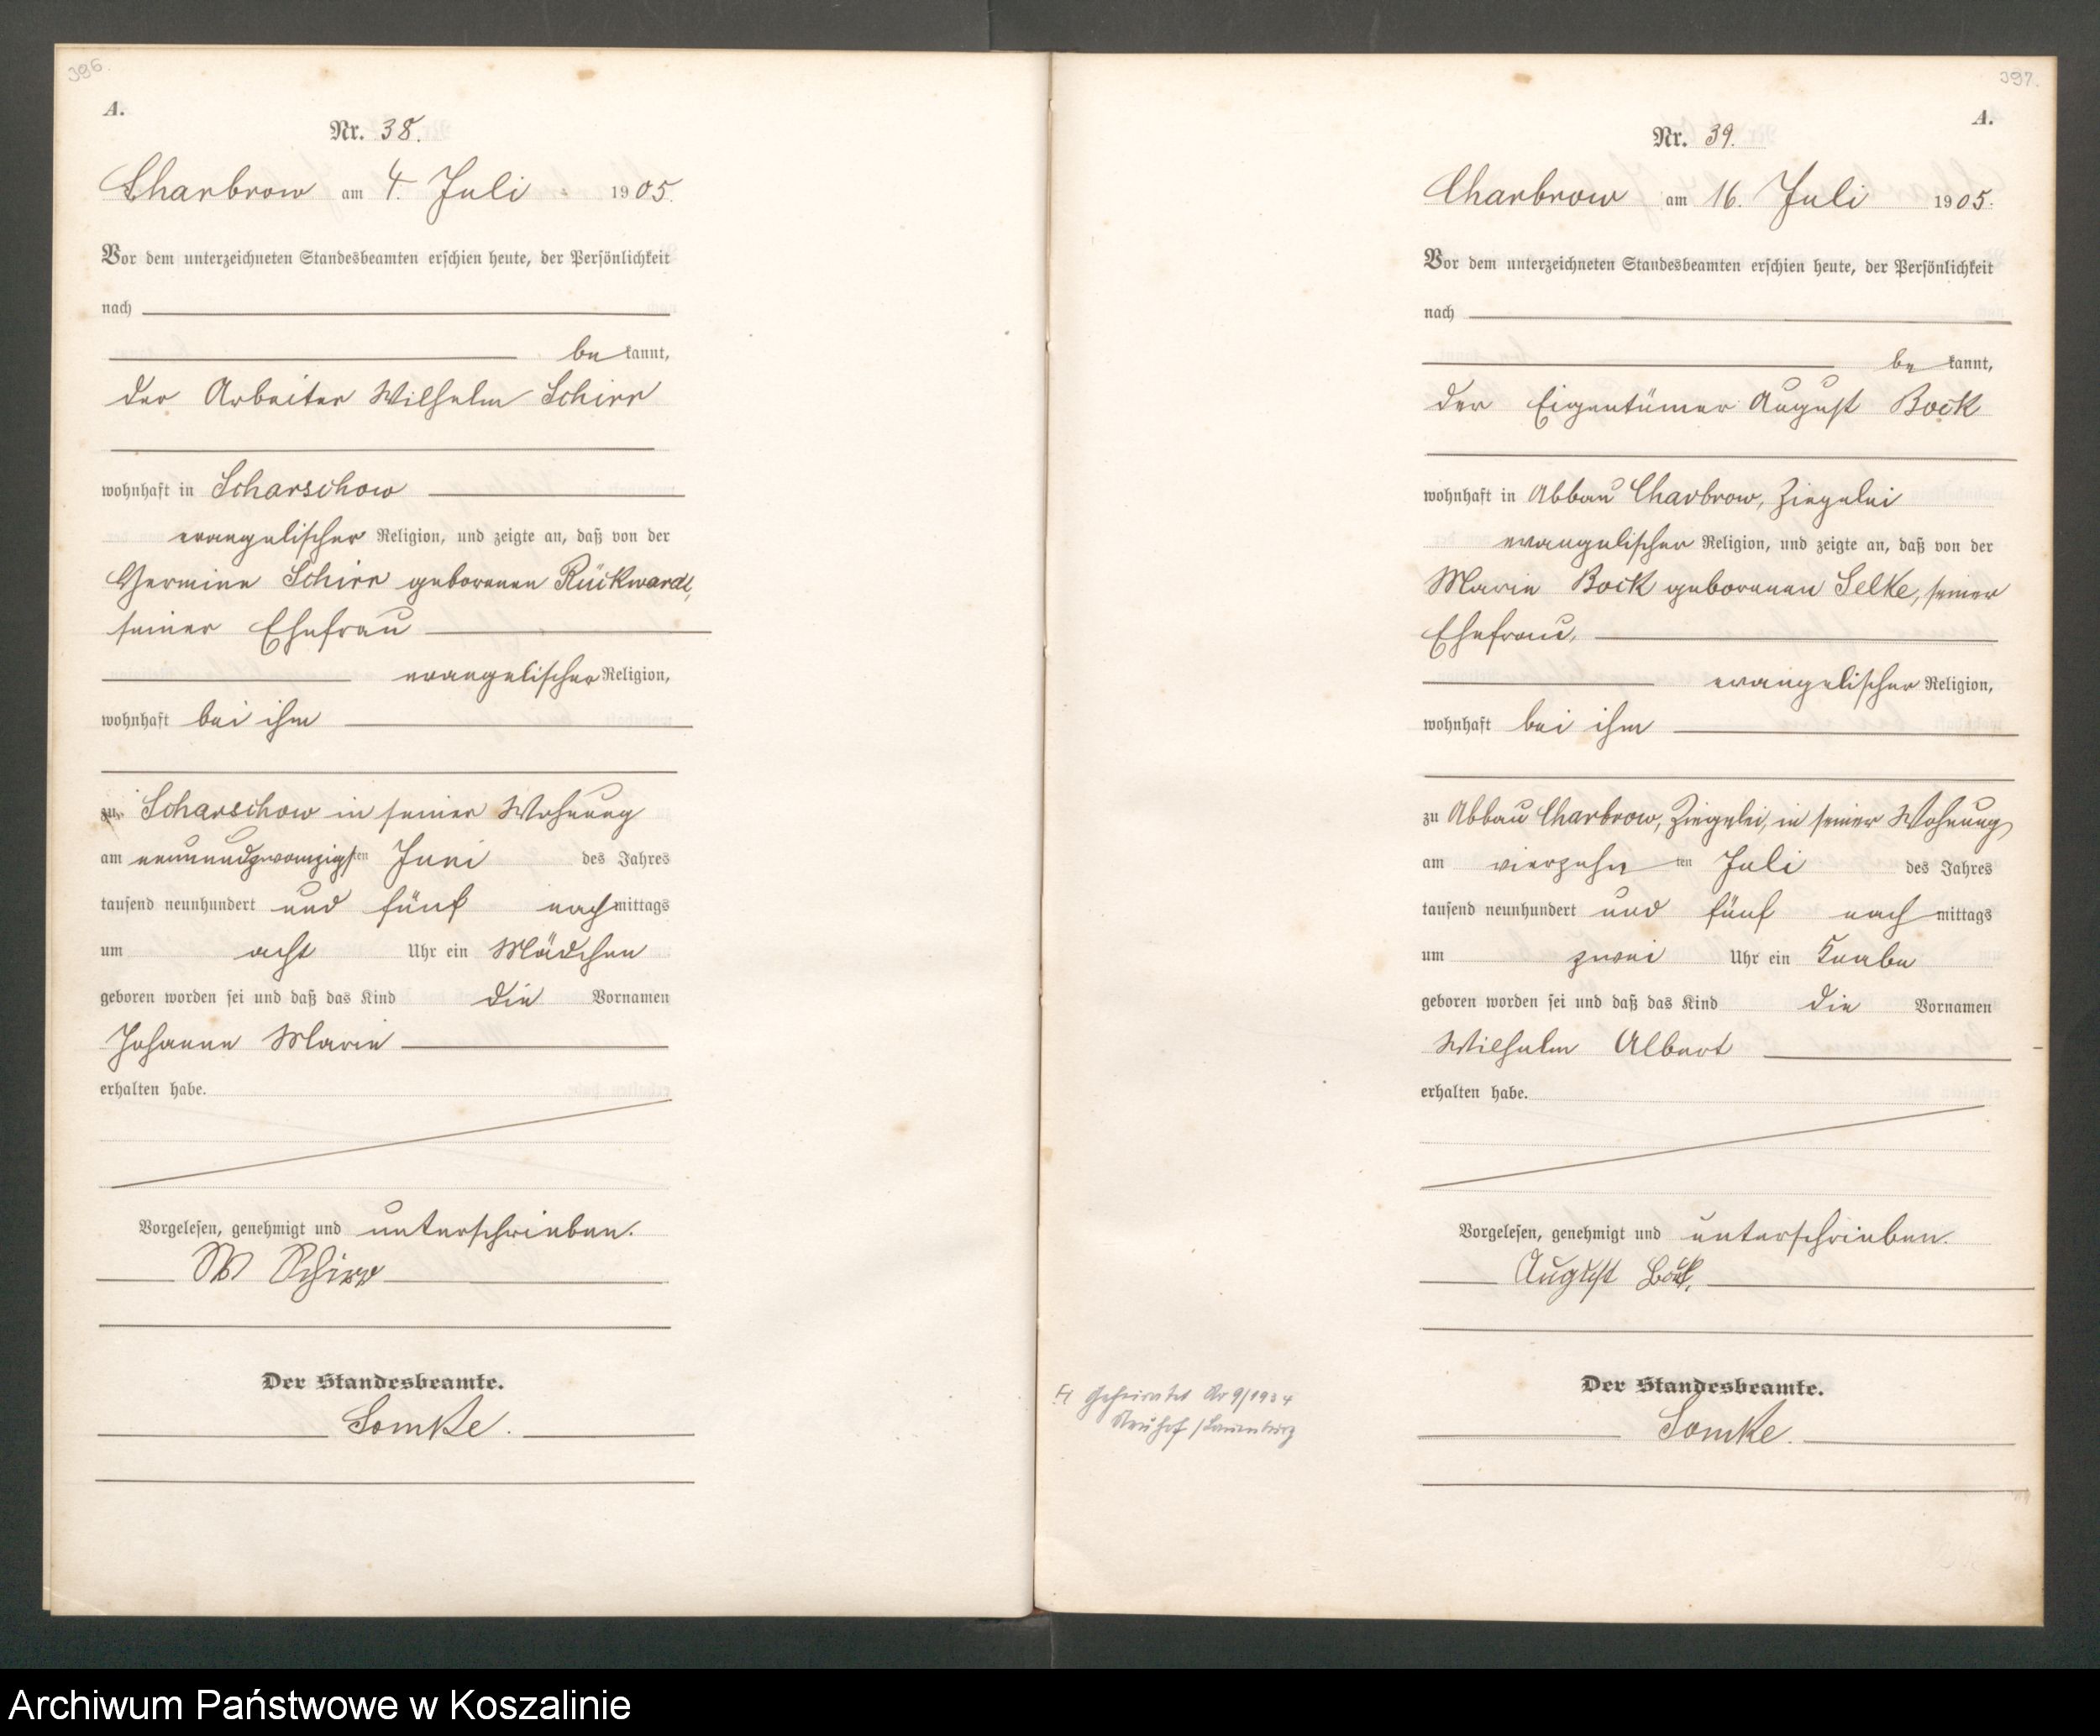 396.
A.
Nr. 38.
Charbrow am 4. Juli 1905.
Vor dem unterzeichneten Standesbeamten erschien heute, der Persönlichkeit
nach
be kannt,
der Arbeiter Wilhelm Schirr
wohnhaft in Scharschow
evangelischer Religion, und zeigte an, daß von der
Hermine Schirr geborenen Rückwardt,
seiner Ehefrau
evangelischer Religion,
wohnhaft bei ihm
zu Scharschow in seiner Wohnung
am neunundzwanzigsten Juni des Jahres
tausend neunhundert und fünf nachmittags
um acht Uhr ein Mädchen
geboren worden sei und daß das Kind die Vornamen
Johanne Marie
erhalten habe.
Vorgelesen, genehmigt und unterschrieben.
W Schirr
Der Standesbeamte.
Lomke.
397.
A.
Nr. 39.
Charbrow am 16. Juli 1905.
Vor dem unterzeichneten Standesbeamten erschien heute, der Persönlichkeit
nach
be kannt,
der Eigentümer August Bock
wohnhaft in Abbau Charbrow, Ziegelei
evangelischer Religion, und zeigte an, daß von der
Marie Bock geborenen Selke, seiner
Ehefrau,
evangelischer Religion,
wohnhaft bei ihm
zu Abbau Charbrow, Ziegelei, in seiner Wohnung
am vierzehn ten Juli des Jahres
tausend neunhundert und fünf nach mittags
um zwei Uhr ein Knabe
geboren worden sei und daß das Kind die Vornamen
Wilhelm Albert
erhalten habe.
Vorgelesen, genehmigt und unterschrieben.
August Bock.
Geheiratet Nr 9/1934
Neuhof / Lauenburg
Der Standesbeamte.
Lomke.
Archiwum Państwowe w Koszalinie